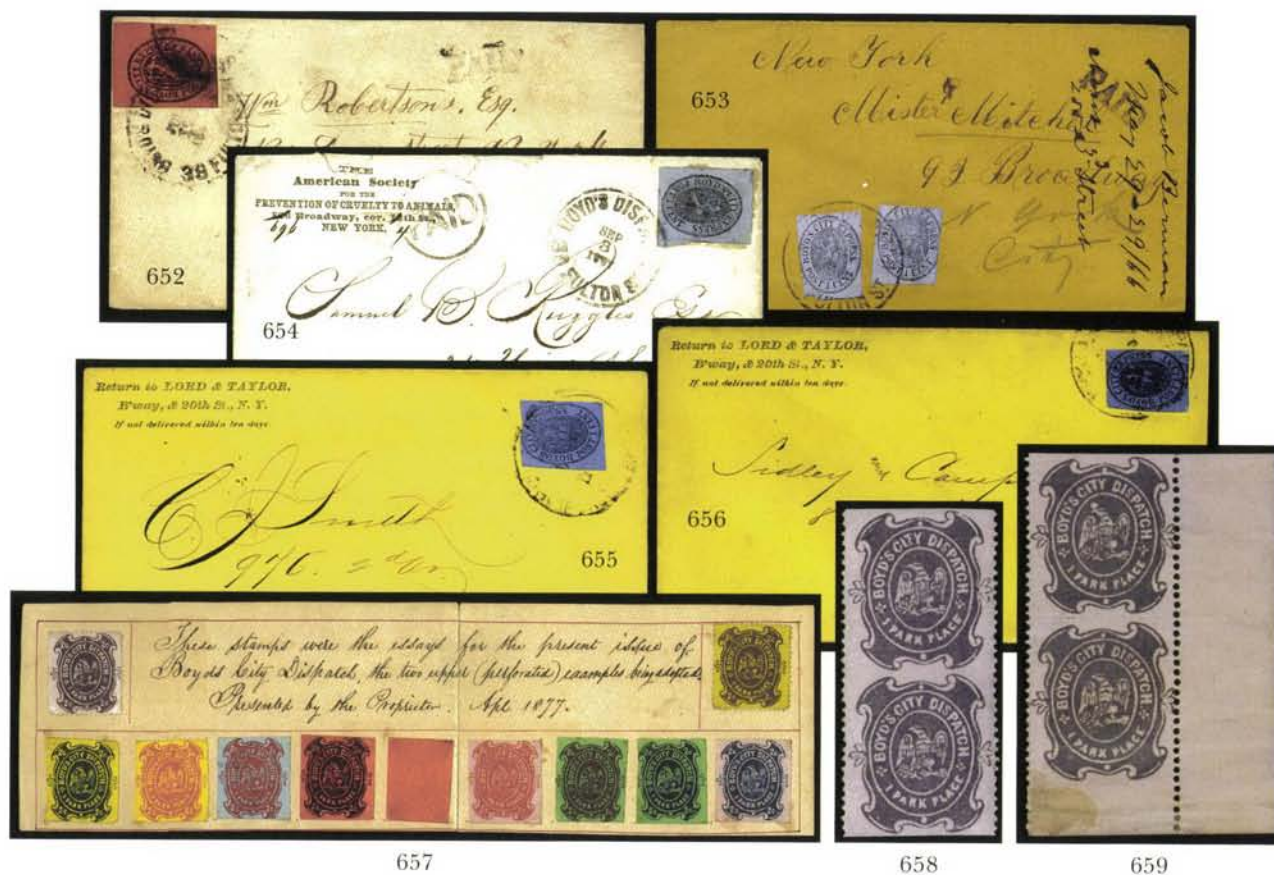 652
PAID
Wm Robertson, Esq.
653
New York
Mister Mitchell
93 Broadway
N. York
City
Jacob Berman
May 29 - 29/66
Street
PAID
654
THE
American Society
FOR THE
PREVENTION OF CRUELTY TO ANIMALS,
Broadway, cor.
696
NEW YORK.
PAID
BOYD'S DISPA
SEP
3
FULTON S
Samuel B. Ruggles Esq
655
Return to LORD & TAYLOR,
B'way, & 20th St., N. Y.
If not delivered within ten days.
C J Smith
976.
656
Return to LORD & TAYLOR,
B'way, & 20th St., N. Y.
If not delivered within ten days.
Sidley & Camp
These stamps were the essays for the present issue of
Boyds City Dispatch, the two upper (perforated) examples being adopted.
Presented by the Proprietor. Apl. 1877.
657
BOYD'S CITY DISPATCH
1 PARK PLACE
BOYD'S CITY DISPATCH
1 PARK PLACE
658
BOYD'S CITY DISPATCH
1 PARK PLACE
BOYD'S CITY DISPATCH
1 PARK PLACE
659